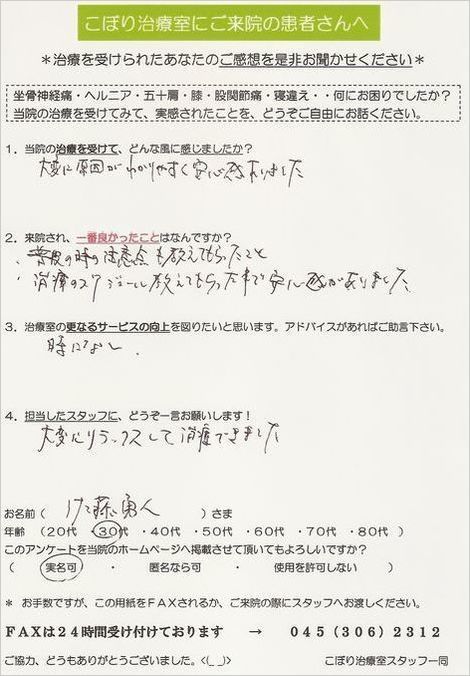 こぼり治療室にご来院の患者さんへ
＊治療を受けられたあなたのご感想を是非お聞かせください＊
坐骨神経痛・ヘルニア・五十肩・膝・股関節痛・寝違え・・何にお困りでしたか？
当院の治療を受けてみて、実感されたことを、どうぞご自由にお話ください。
1．当院の治療を受けて、どんな風に感じましたか？
大変に原因がわかりやすく安心感ありました
2．来院され、一番良かったことはなんですか？
・普段の時の注意点も教えてもらったこと
・治療のスケジュール教えてもらった事で安心感がありました
3．治療室の更なるサービスの向上を図りたいと思います。アドバイスがあればご助言下さい。
時になし．
4．担当したスタッフに、どうぞ一言お願いします！
大変にリラックスして治療できました
お名前（ 藤 勇人 ）さま
年齢 （20代 ・30代 ・40代 ・50代 ・60代 ・70代 ・80代 ）
このアンケートを当院のホームページへ掲載させて頂いてもよろしいですか？
（ 実名可 ・ 匿名なら可 ・ 使用を許可しない ）
＊ お手数ですが、この用紙をＦＡＸされるか、ご来院の際にスタッフへお渡しください。
ＦＡＸは２４時間受け付けております → ０４５（３０６）２３１２
ご協力、どうもありがとうございました。<(_ _)> こぼり治療室スタッフ一同